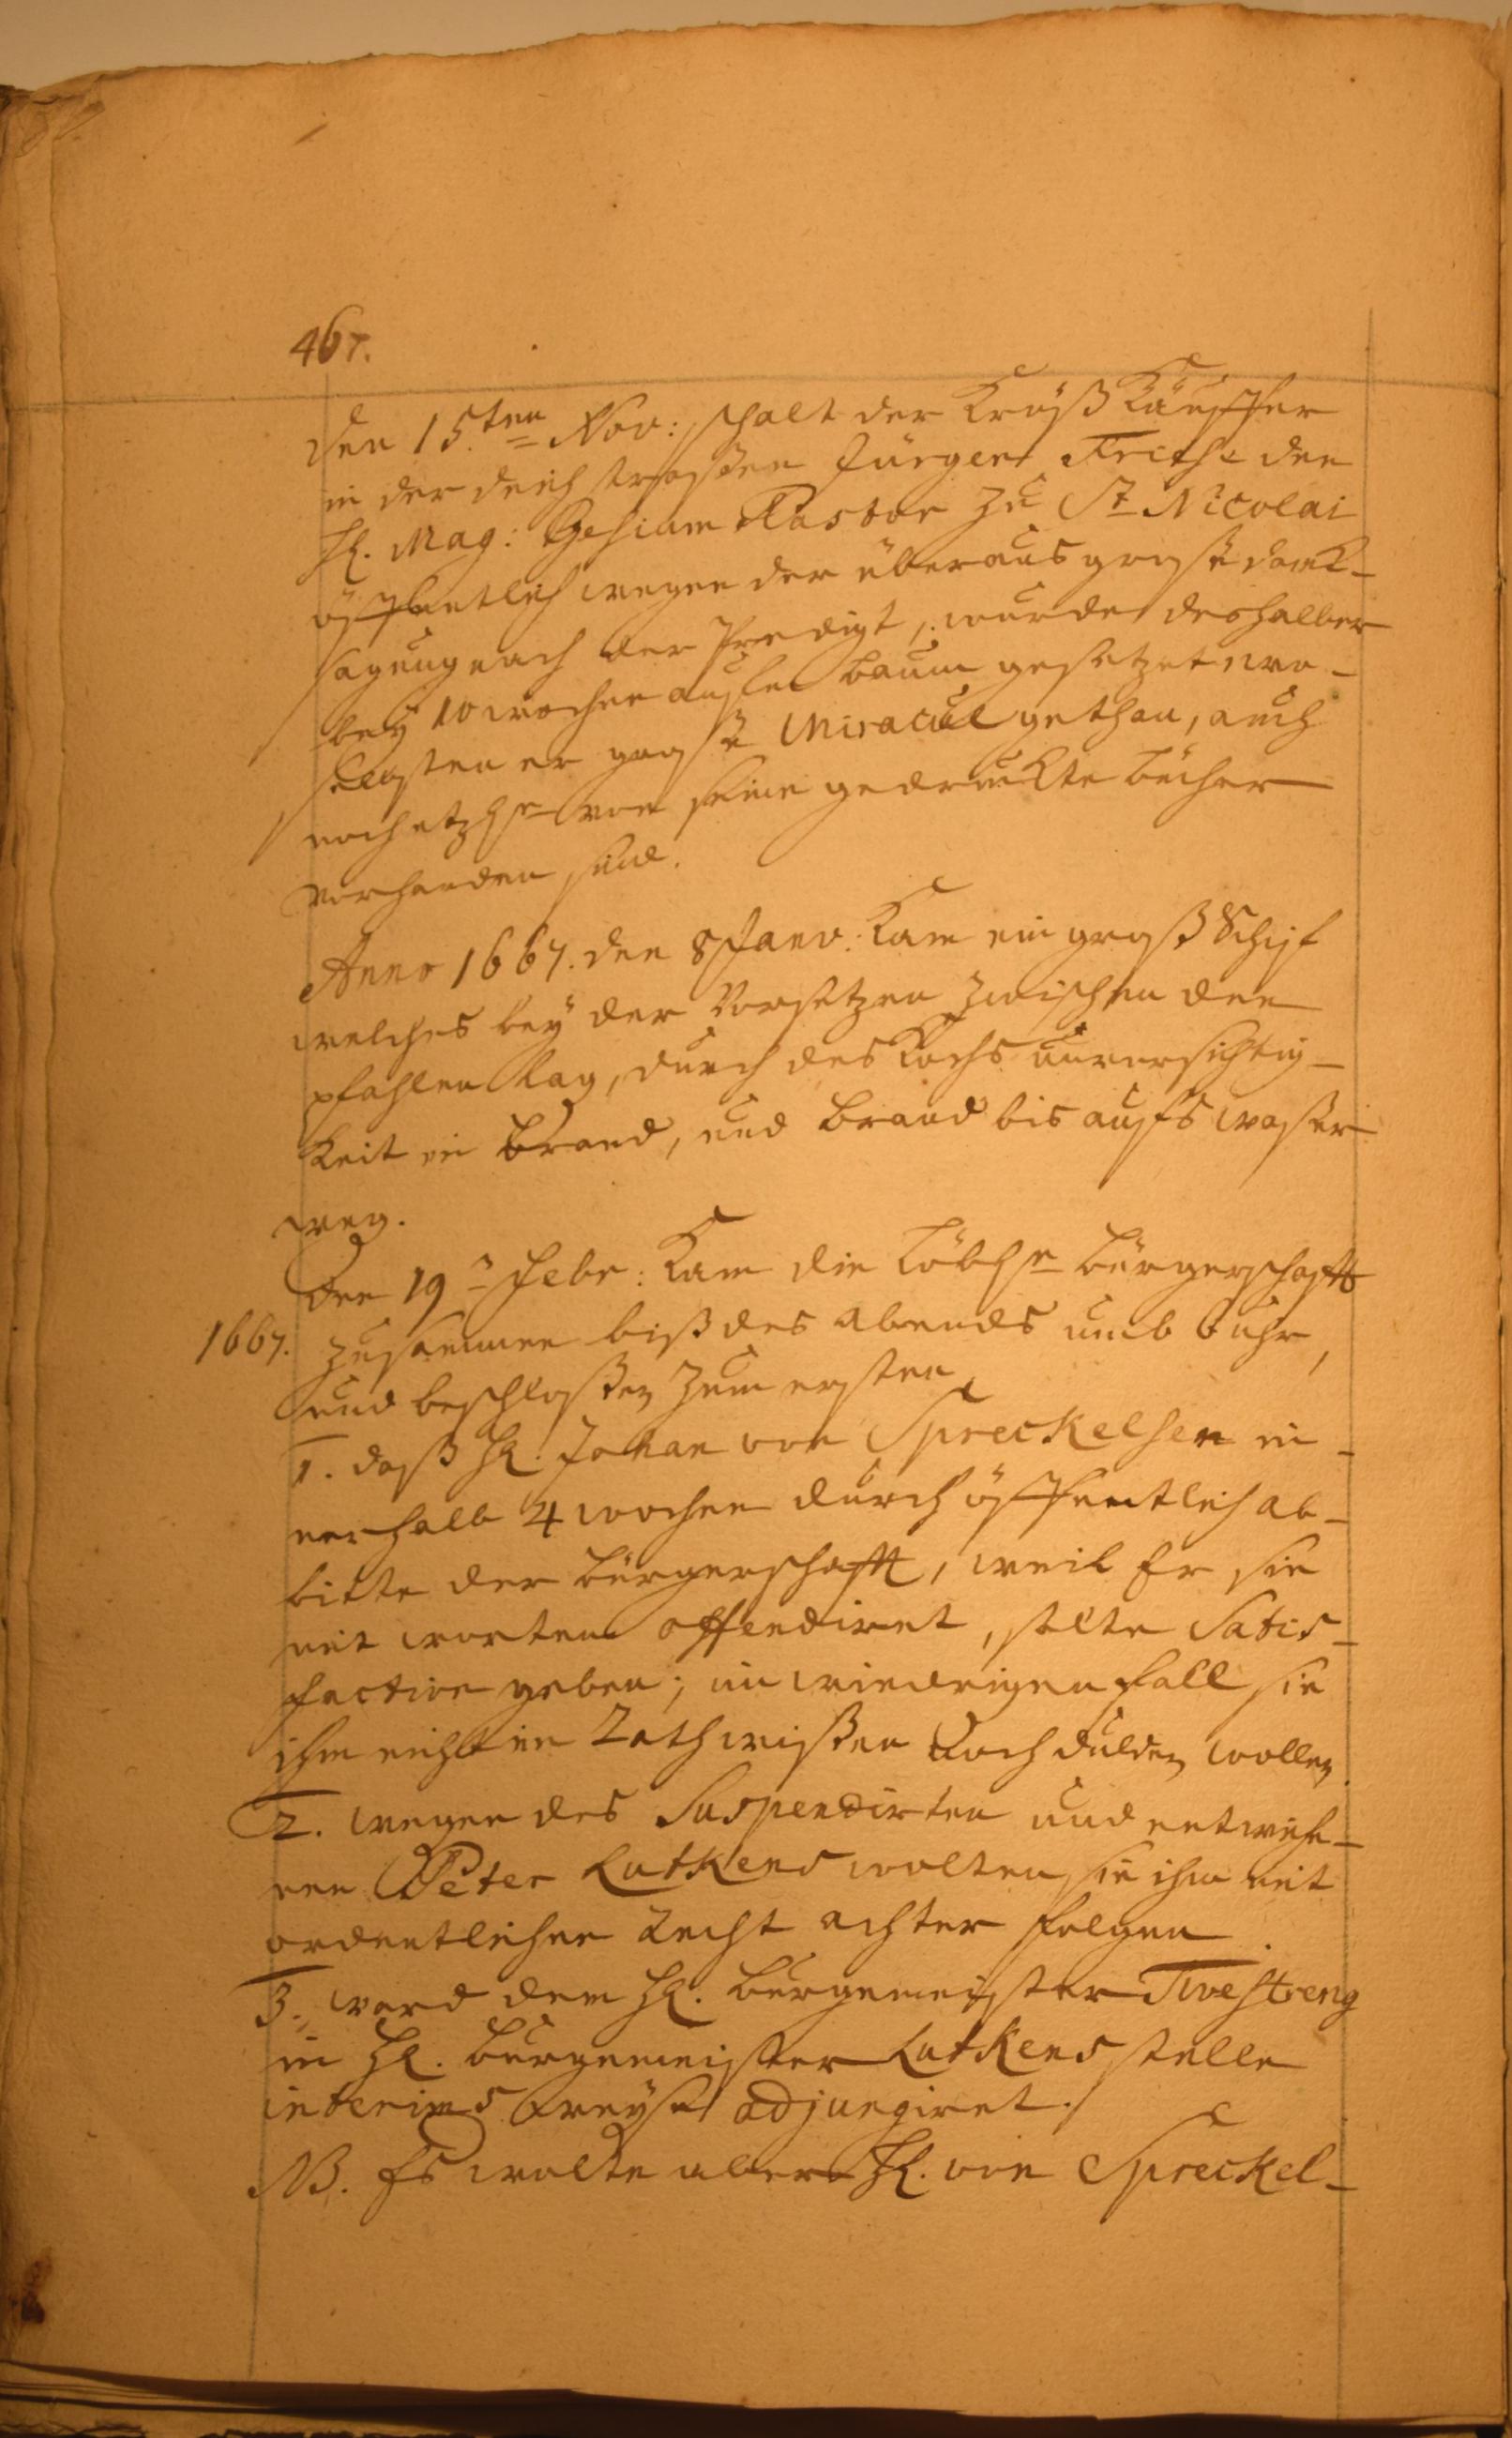 467.
Den 15.ten Nov: schalt der Krüß Käuffer
in der deich straßen Jürgen Frese den
H. Mag: Gesium Pastor zu St Nicolai
öffentlich wegen der überaus große danck-
sagung nach der Predigt, wurde deshalber
bey 10 wochen aufen baum gesetzet wo-
selbsten er große Miracul gethan, auch
noch etzl. von seine gedruckte bücher
vorhanden sind.
Anno 1667. den 8 Janv: kam ein groß Schif
welches bey der Vorsetzen zwischen den
pfahlen lag, durch des Kochs unvorsichtig-
keit in brand, und brand bis aufs waßer
weg.
Den 19 Febr: kam die Löbl. bürgerschafft
1667. zusammen biß des abends umb 6 uhr,
und beschloßen zum ersten,
1. daß H. Johan von Spreckelsen in-
nerhalb 4 wochen durch öffentlich ab-
bitte der bürgerschafft, weil Er sie
mit worten offendiret, solte Satis-
faction geben; im wiedrigen fall sie
ihm nicht im Rath wißen noch dulden wollen
2. wegen des Suspendirten und entwiche-
nen Peter Lutkens wolten sie ihm mit
ordentlicher Recht achter folgen
3. ward dem H. burgemeister Twestreng
in H. burgemeister Lutkens stelle
interims weyse adjungiret.
NB. Es wolte aber H. von Spreckel-